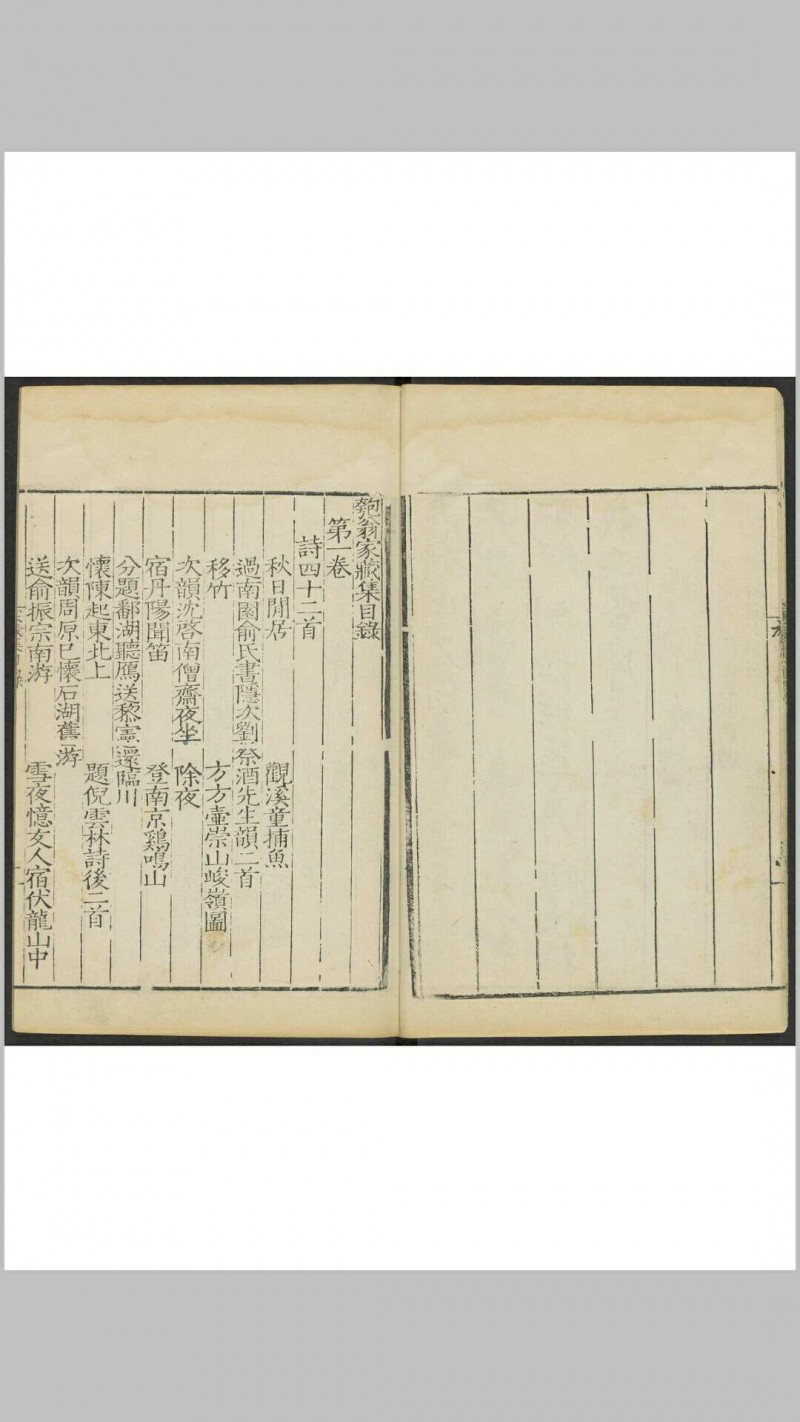 匏翁家藏集目錄
第一卷
詩四十二首
秋日閒居 觀溪童捕魚
過南園俞氏書隱次劉祭酒先生韻二首
移竹 方方壷崇山峻嶺圖
次韻沈啓南僧齋夜坐 除夜
宿丹陽聞笛 登南京鷄鳴山
分題鄱湖聽鴈送黎憲還臨川
懷陳起東北上 題倪雲林詩後二首
次韻周原已懷石湖舊游
送俞振宗南游 雪夜憶友人宿伏龍山中